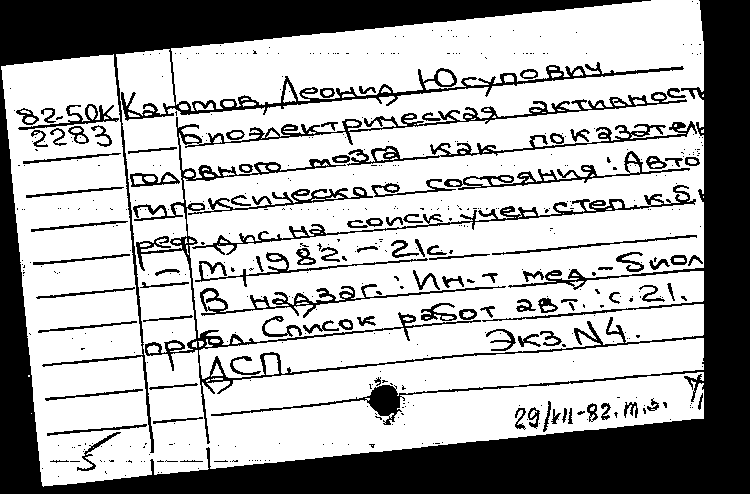 82-50К Каюмов, Леонид Юсупович.
2283 Биоэлектрическая активность
головного мозга как показатель
гипоксического состояния: Авто
реф. дис. на соиск. учен. степ. к.б.н
. – М., 1982. – 21с.
В надзаг.: Ин-т мед.-биол
пробл. Список работ авт.: с.21.
ДСП. Экз. N4.
29/VII-82. т.з.
5